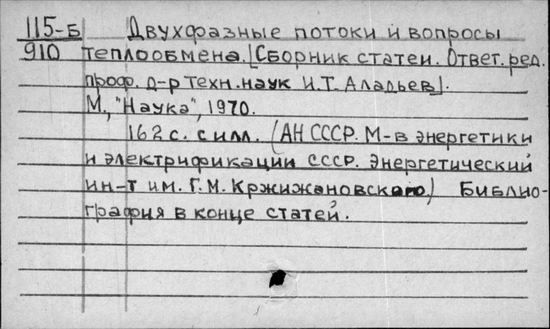 115-Б Двухфазные потоки и вопросы
910 теплообмена. [Сборник статей. Ответ. ред.
проф. д-р техн. наук И.Т. Аладьев].
М., "Наука", 1970.
162 с. с илл. (АН СССР. М-в энергетики
и электрификации СССР. Энергетический
ин-т им. Г.М. Кржижановского) Библио-
графия в конце статей.